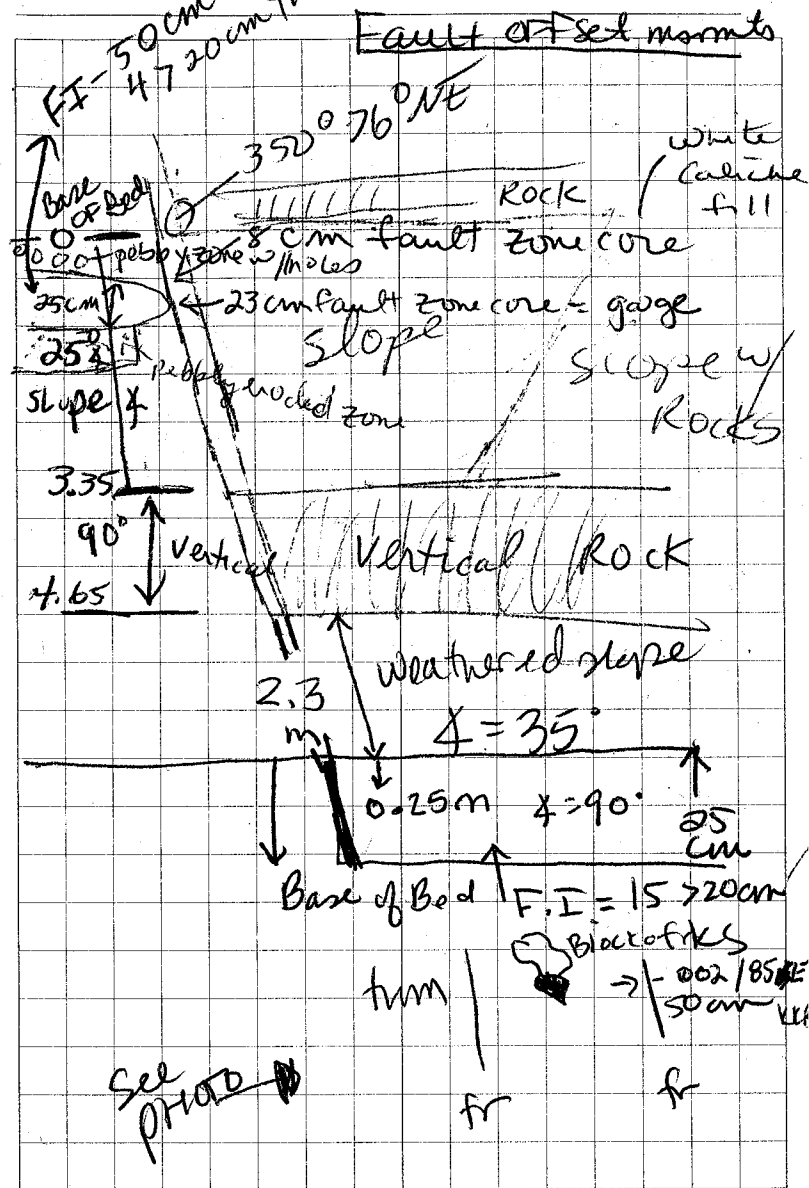 Fault offset msmnts
FI - 50 cm
47 20 cm
350° 76° NE
White
Caliche
fill
ROCK
Base
OF Bed
8 cm fault zone core
pebbly zone w/ holes
25 cm
23 cm fault zone core = gouge
slope
25°
slope ∡
pebbly eroded zone
slope w/
Rocks
3.35
90°
Vertical
Vertical Rock
4.65
weathered slope
2.3
m
∡ = 35°
0.25m ∡ = 90°
25
cm
Base of Bed
F.I = 15 > 20 cm
Block of rks
→ 002 / 85
50 cm
See
PHOTO
fr
fr